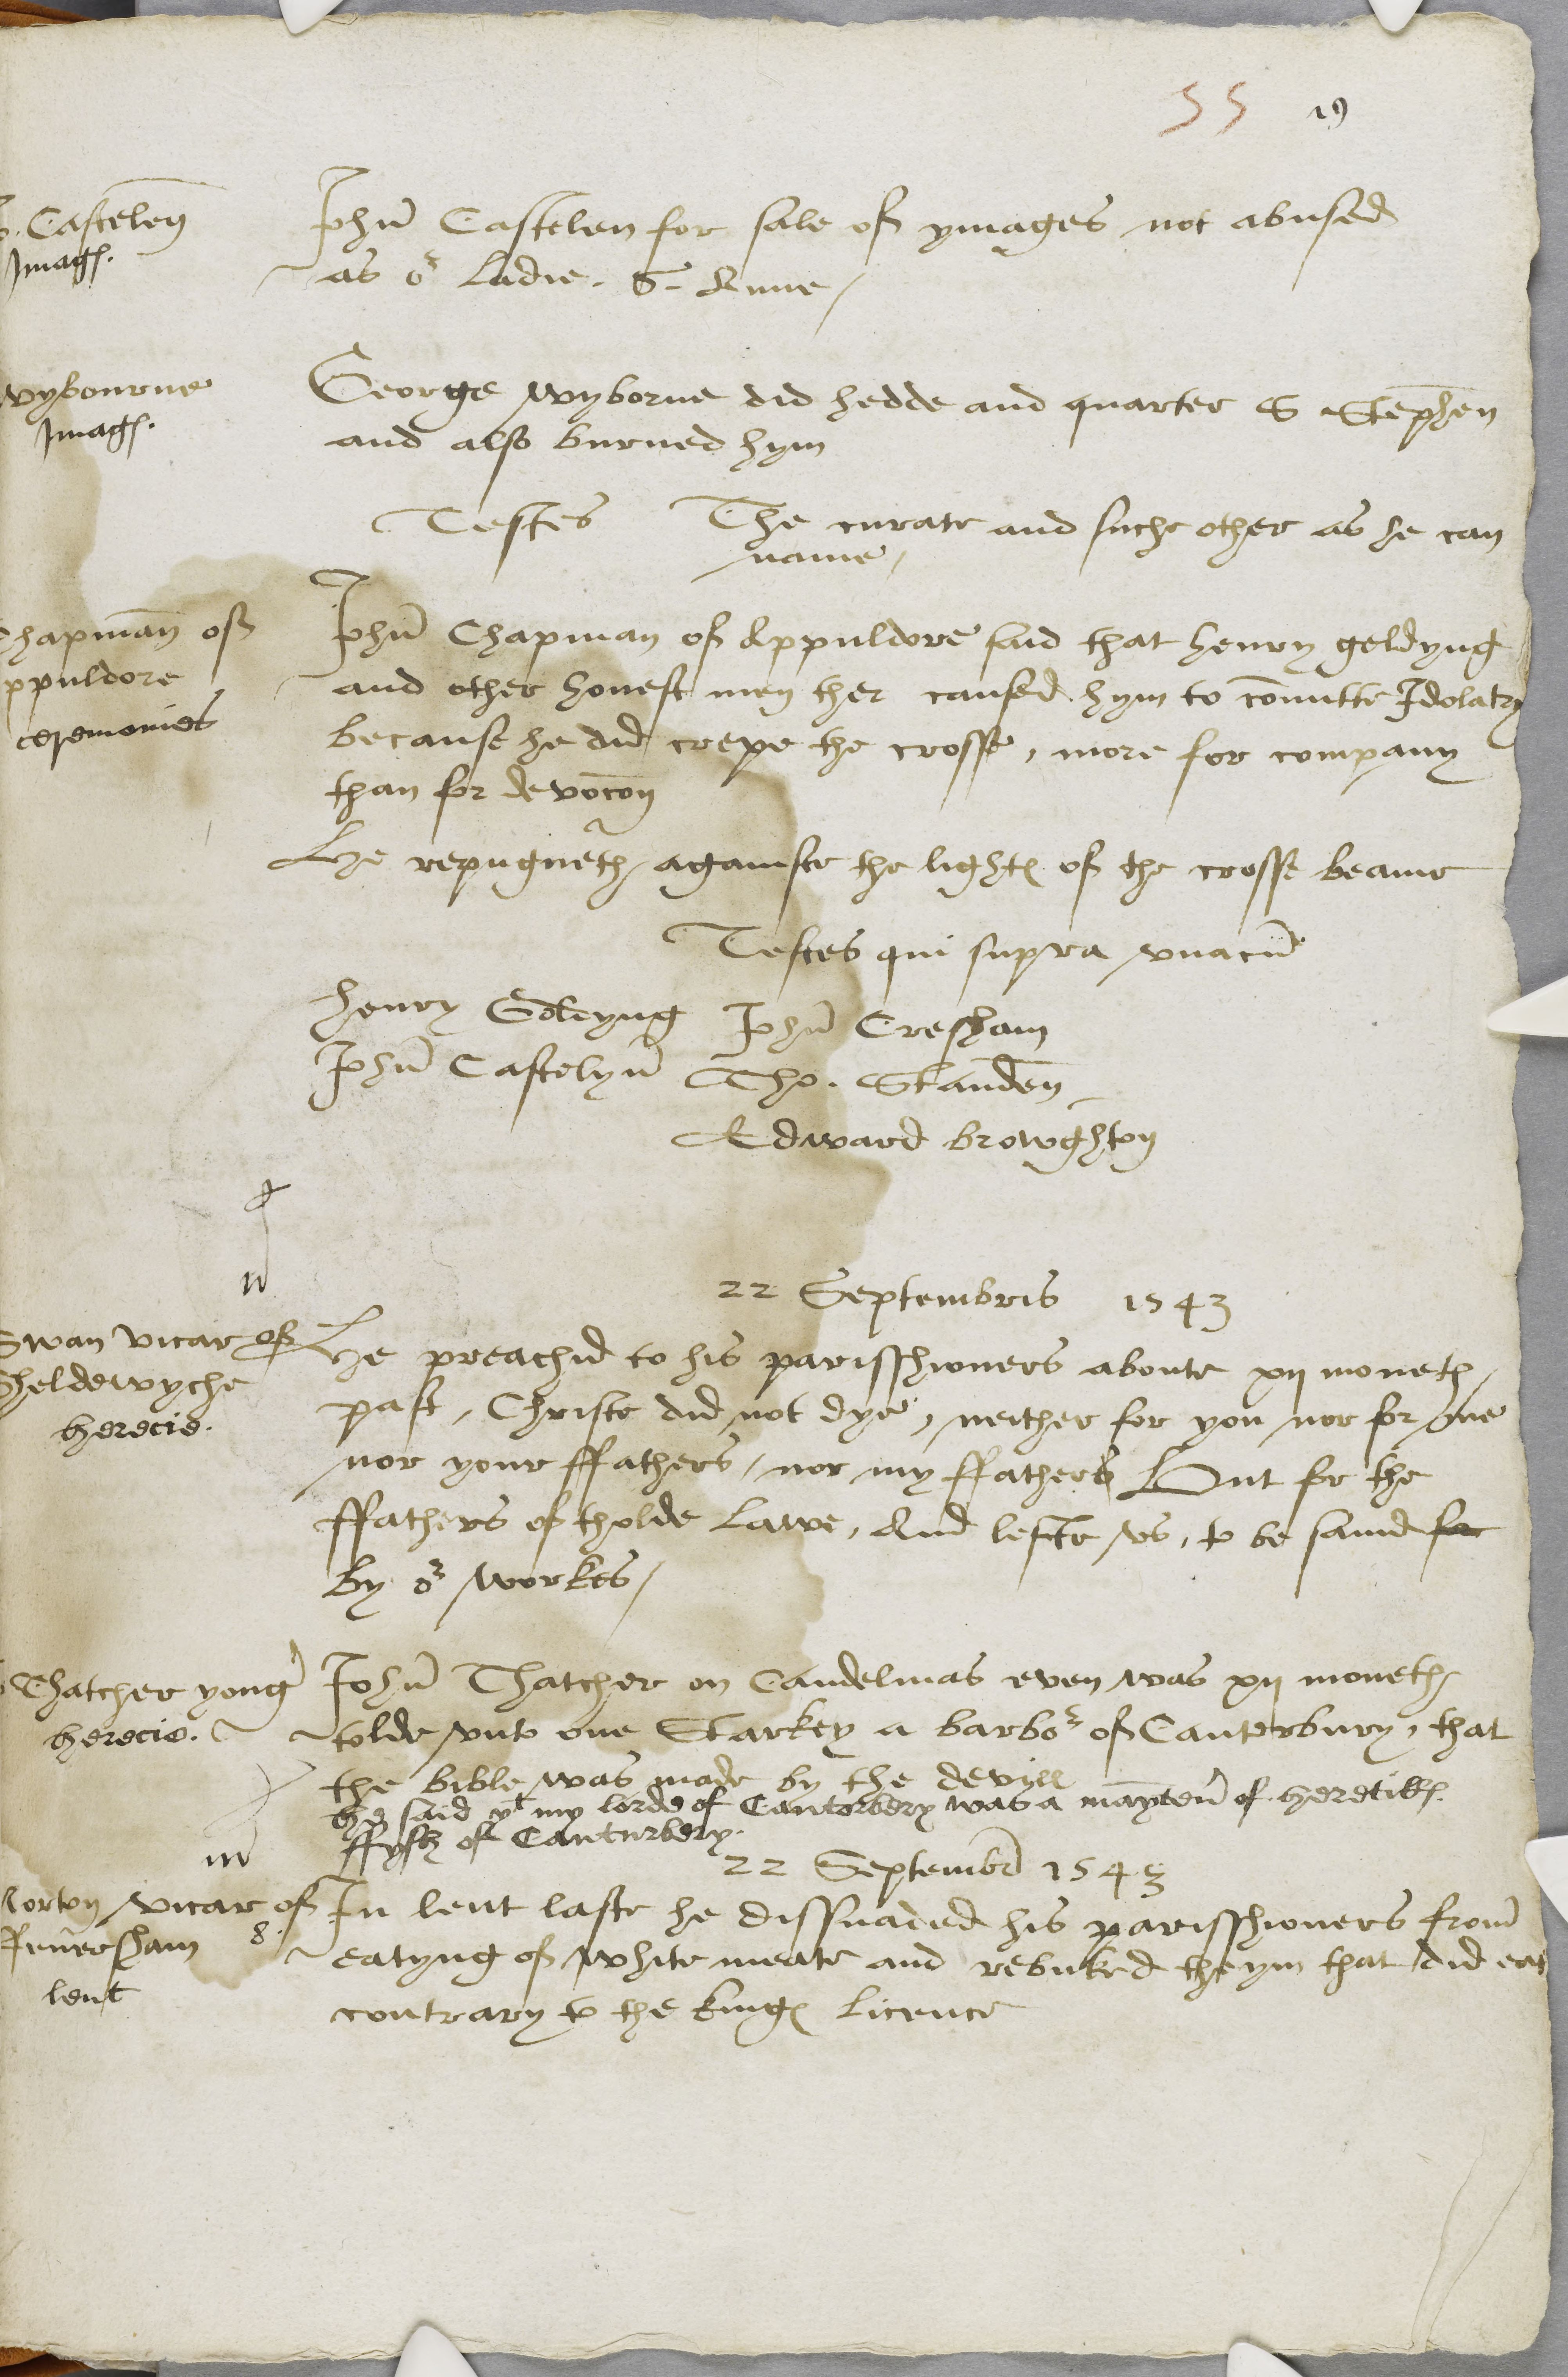 55 19
Castelen
Imag.
John Castelen for sale of ymages not abused
as or Ladie. S. Anne /
wybourne
Imag.
George wyborne did hedde and quarter S Stephen
and also burned hym
Testes The curate and suche other as he can
name /
Chapman of
ppuldore
ceremonies
John Chapman of Appuldore said that henry geldyng
and other honest men ther caused hym to comitte Idolatry
because he did crepe the crosse, more for company
than for devocon
He repugneth againste the lights of the crosse beame
Testes qui supra vnacum
henry Goldyng John Cresham
John Castelyn Tho. Standen
Edward browghton
22 Septembris 1543
Swan vicar of
Sheldewyche
herecie.
He preachid to his parisshioners aboute xij moneth
past, Christe did not dye, neither for you nor for me
nor your ffathers, nor my ffathers But for the
ffathers of tholde Lawe, And lefte vs, to be savid for
by or workes /
Thatcher yonger
herecie.
John Thatcher on Candelmas even was xij moneth
tolde vnto one Starkey a barbor of Canterbury, that
the bible was made by the devyll
he said yt my lorde of Cantorbery was a maynten of heretikks.
ffysh of Canturbery.
22 Septembr 1543
Norton vicar of
ffeversham 8.
lent
In lent laste he dissuaded his parisshioners from
eatyng of white meate and rebuked theym that did eat
contrary to the kings licence